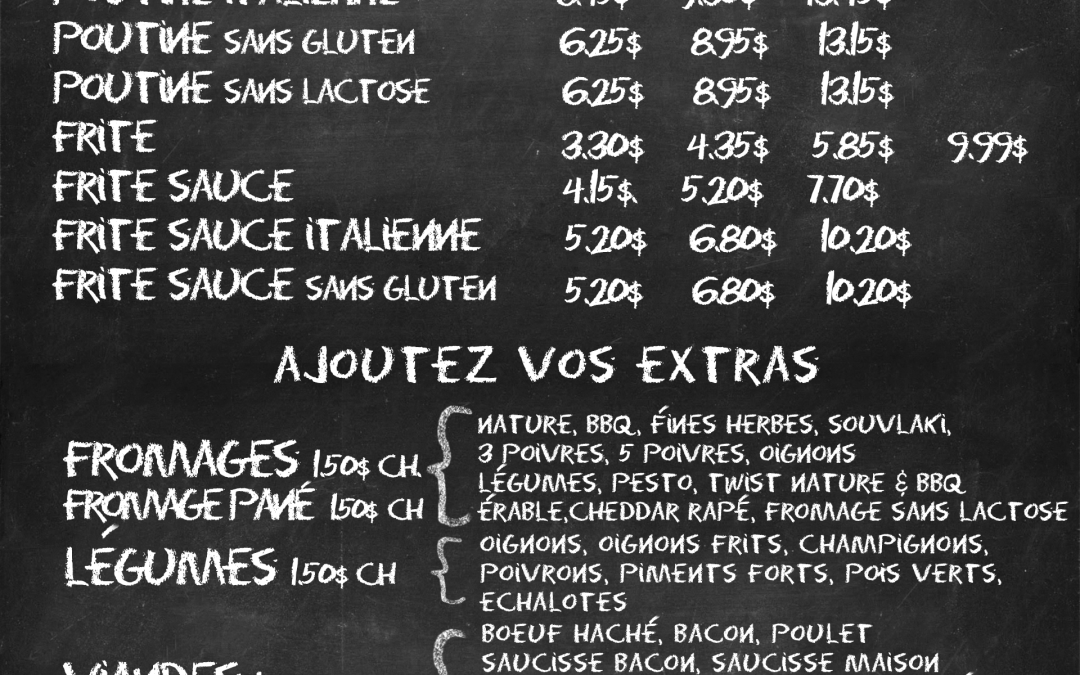 POUTINE ITALIENNE
POUTINE SANS GLUTEN 6.25$ 8.95$ 13.15$
POUTINE SANS LACTOSE 6.25$ 8.95$ 13.15$
FRITE 3.30$ 4.35$ 5.85$ 9.99$
FRITE SAUCE 4.15$ 5.20$ 7.70$
FRITE SAUCE ITALIENNE 5.20$ 6.80$ 10.20$
FRITE SAUCE SANS GLUTEN 5.20$ 6.80$ 10.20$
AJOUTEZ VOS EXTRAS
FROMAGES 1.50$ CH.
FROMAGE PANÉ 1.50$ CH
NATURE, BBQ, FÍNES HERBES, SOUVLAKI,
3 POIVRES, 5 POIVRES, OIGNONS
LÉGUMES, PESTO, TWIST NATURE & BBQ
ÉRABLE,CHEDDAR RAPÉ, FROMAGE SANS LACTOSE
LÉGUMES 1.50$ CH
OIGNONS, OIGNONS FRITS, CHAMPIGNONS,
POIVRONS, PIMENTS FORTS, POIS VERTS,
ECHALOTES
VIANDES
BOEUF HACHÉ, BACON, POULET
SAUCISSE BACON, SAUCISSE MAISON